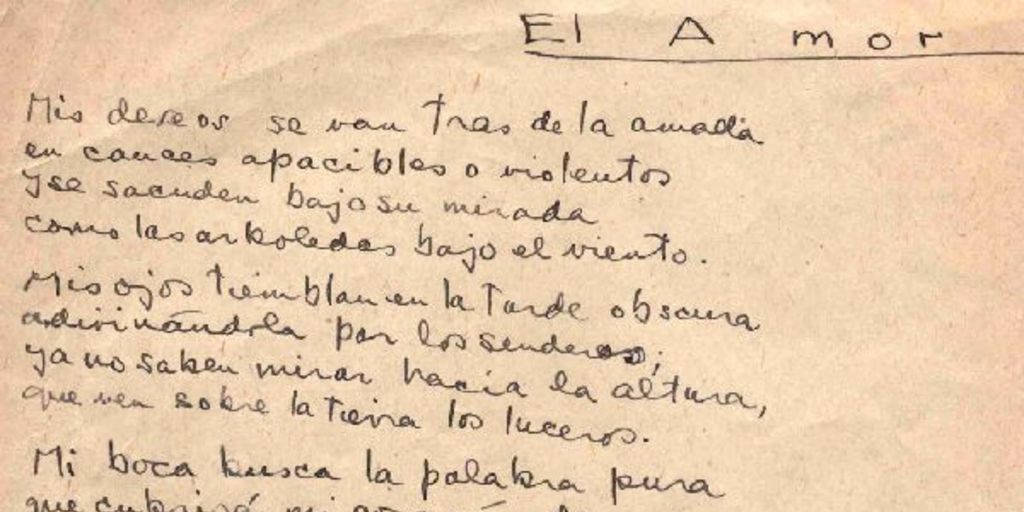 El Amor
Mis deseos se van tras de la amada
en cauces apacibles o violentos
y se sacuden bajo su mirada
como las arboledas bajo el viento.
Mis ojos tiemblan en la tarde obscura
adivinándola por los senderos;
ya no saben mirar hacia la altura,
que ven sobre la tierra los luceros.
Mi boca busca la palabra pura
que cubrirá mi